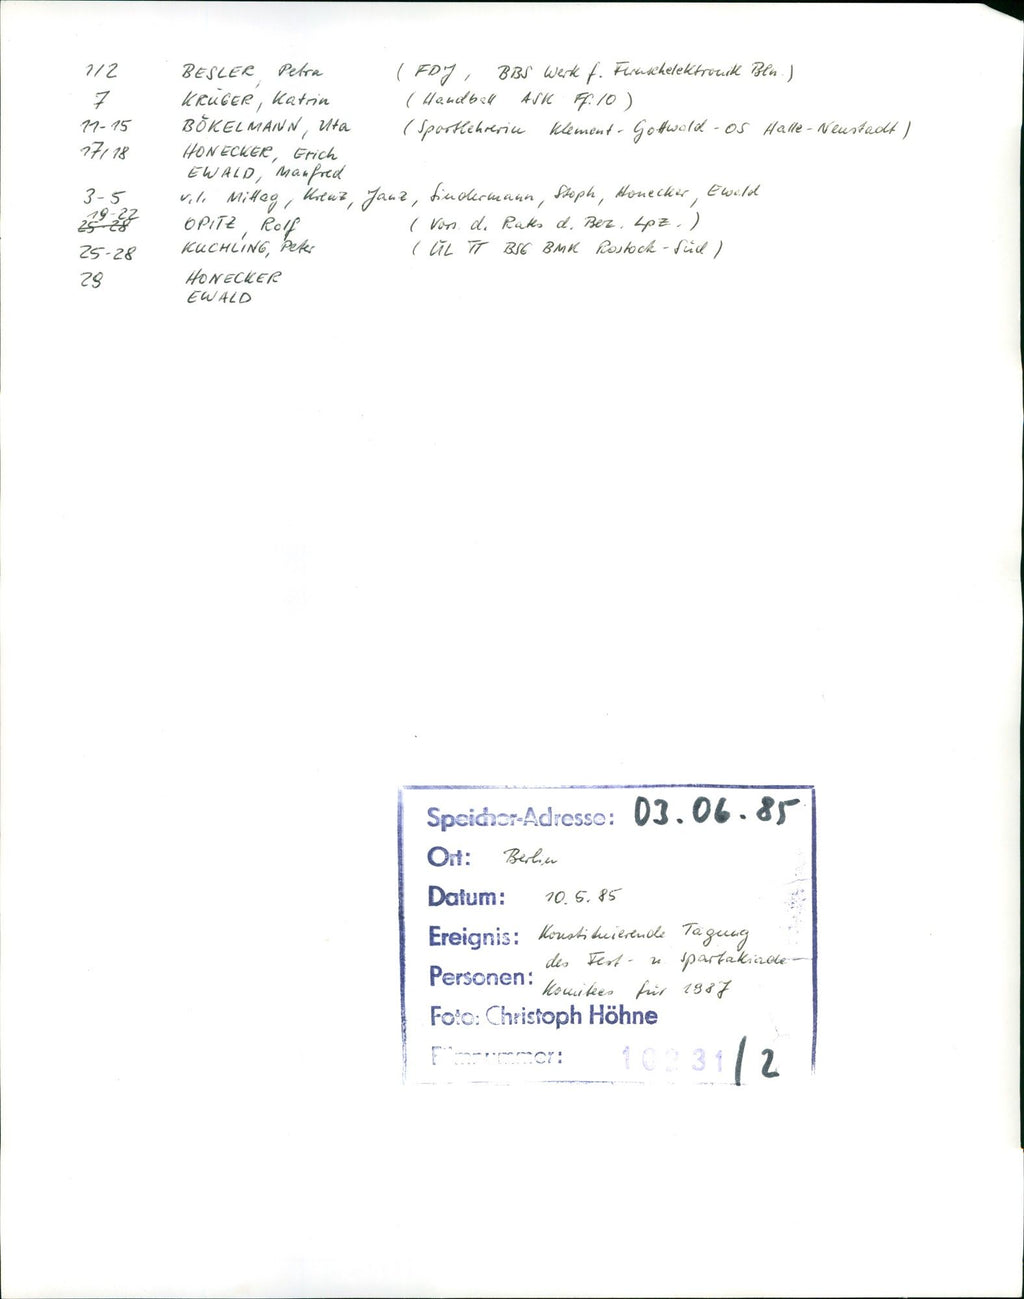 1/2 BESLER, Petra ( FDJ, BBS Werk f. Fernsehelektronik Bln.)
7 KRÜGER, Katrin ( Handball ASK Ff./O )
11-15 BÖKELMANN, Uta ( Sportlehrerin Klement-Gottwald-OS Halle-Neustadt )
17/18 HONECKER, Erich
EWALD, Manfred
3-5 v.l. Mittag, Krenz, Janz, Sindermann, Stoph, Honecker, Ewald
19-22
25-28 OPITZ, Rolf ( Vors. d. Rates d. Bez. Lpz. )
25-28 KUCHLING, Peter ( ÜL TT BSG BMK Rostock-Süd )
29 HONECKER
EWALD
Speicher-Adresse: 03.06.85
Ort: Berlin
Datum: 10.5.85
Ereignis: Konstituierende Tagung
des Fest- u Spartakiade-
Personen: Komitees für 1987
Foto: Christoph Höhne
Filmnummer: /2